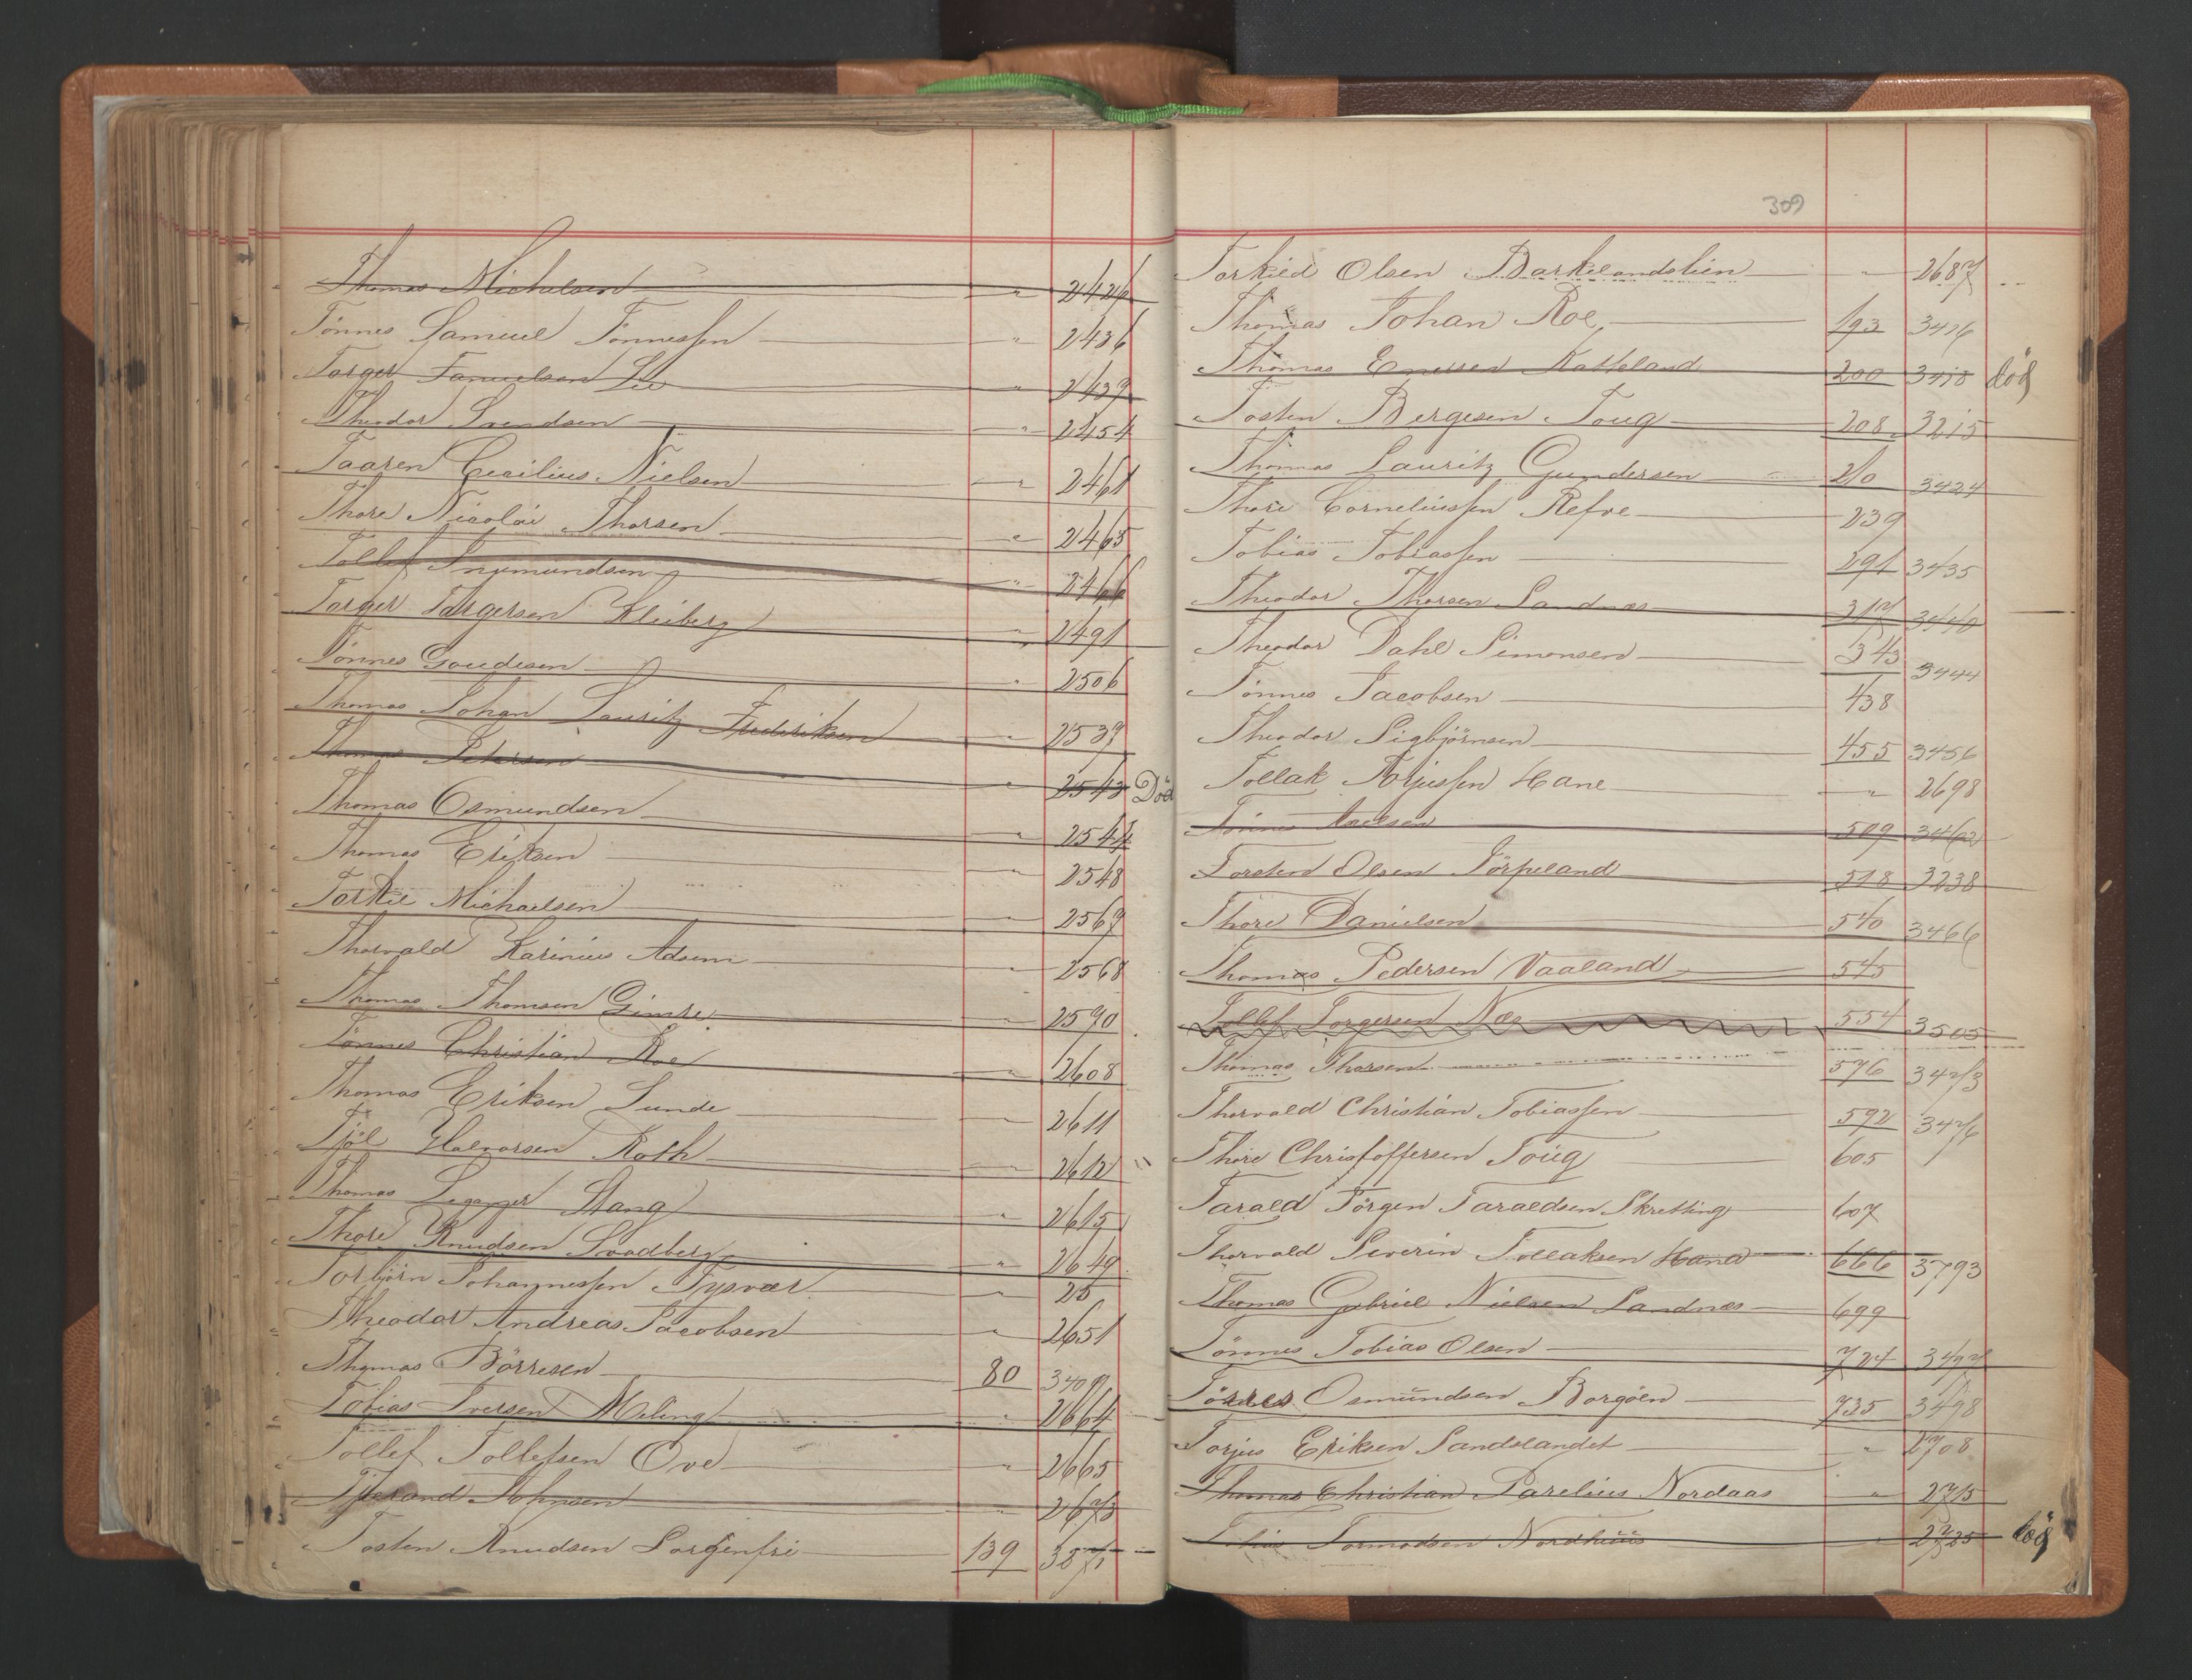 Thomas Michelsen " 2426
Tönnes Samuel Tönnessen " 2436
Torger Samuelsen Lie " 2439
Theodor Svendsen " 2454
Taaren Cecilius Nielsen " 2461
Thore Nicolai Thorsen " 2465
Tollef Ingemundsen " 2466
Torger Torgersen Kleiberg " 2491
Tönnes Goudesen " 2506
Thomas Johan Lauritz Frederiksen " 2539
Thomas Petersen " 2543 Död
Thomas Osmundsen " 2544
Thomas Eriksen " 2548
Torkil Michaelsen " 2567
Thorvald Karinius Adsem " 2568
Thomas Thomsen Gimre " 2590
Tönnes Christian Roe " 2608
Thomas Eriksen Lunde " 2611
Tjöl Halvorsen Roth " 2612
Thomas Leganger Stang " 2615
Thore Knudsen Svadberg " 2649
Torbjörn Johannessen Tysvær " 25
Theodor Andreas Jacobsen " 2651
Thomas Börresen 80 3409
Tobias Iversen Meling " 2664
Tollef Tollefsen Ove " 2665
Tjerand Johnsen " 2673
Tosten Knudsen Sorgenfri 139 3871
309
Torkild Olsen Barkelandslien " 2687
Thomas Johan Roe 193 3416
Thomas Enersen Katteland 200 3418 död
Tosten Bergesen Toug 208 3215
Thomas Lauritz Gundersen 210 3424
Thore Corneliussen Refve 239
Tobias Tobiassen 291 3435
Theodor Thorsen Sandnæs 317 3440
Theodor Dahl Simonsen 343 3444
Tönnes Jacobsen 438
Theodor Sigbjörnsen 455 3456
Tollak Torjussen Hane " 2698
Tönnes Axelsen 509 3462
Torsten Olsen Törpeland 518 3238
Thore Danielsen 540 3466
Thomas Pedersen Vaaland 545
Tollef Torgersen Næs 554 3505
Thomas Thorsen 576 3473
Thorvald Christian Tobiassen 592 3476
Thore Christoffersen Toug 605
Tarald Törgen Taraldsen Skretting 607
Thorvald Severin Tollaksen Hana 666 3793
Thomas Gabriel Nielsen Sandnes 699
Tönnes Tobias Olsen 724 3497
Törres Osmundsen Borgöen 735 3498
Torjus Eriksen Sandslandet " 2708
Thomas Christian Parelius Nordaas " 2715
Tobias Tormodsen Nordhuus " 2725 död